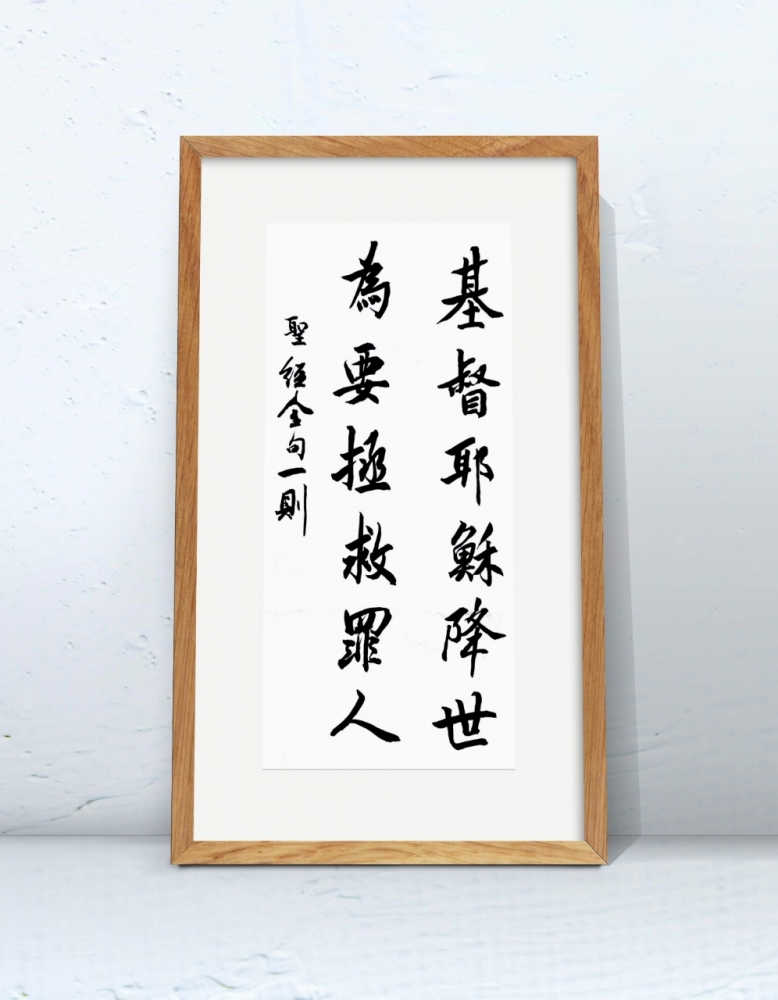 基督耶穌降世
為要拯救罪人
聖經金句一則